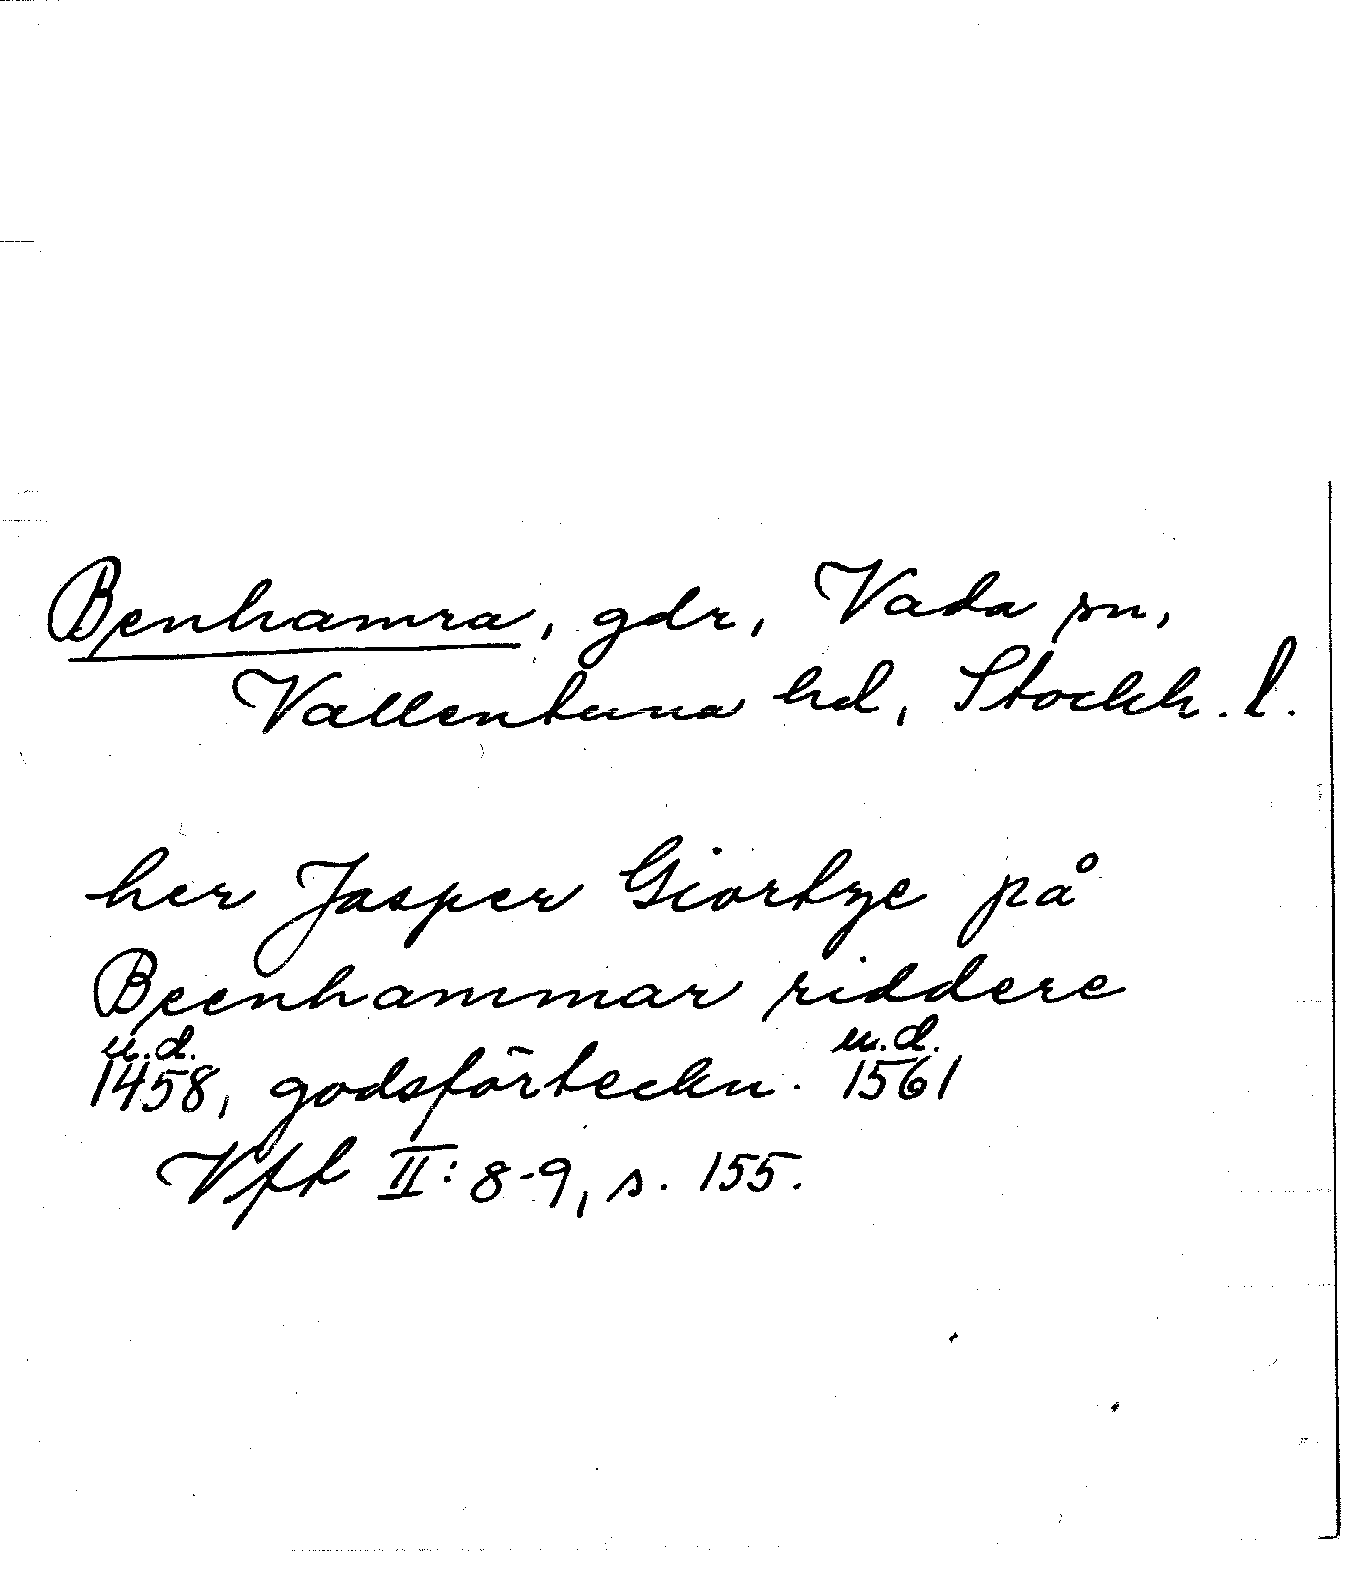 Benhamra, gdr, Vada sn,
Vallentuna hd, Stockh. l.
her Jasper Giortze på
Beenhammar riddere
u.d. u.d.
1458, godsförteckn. 1561
Vft II: 8-9, s. 155.